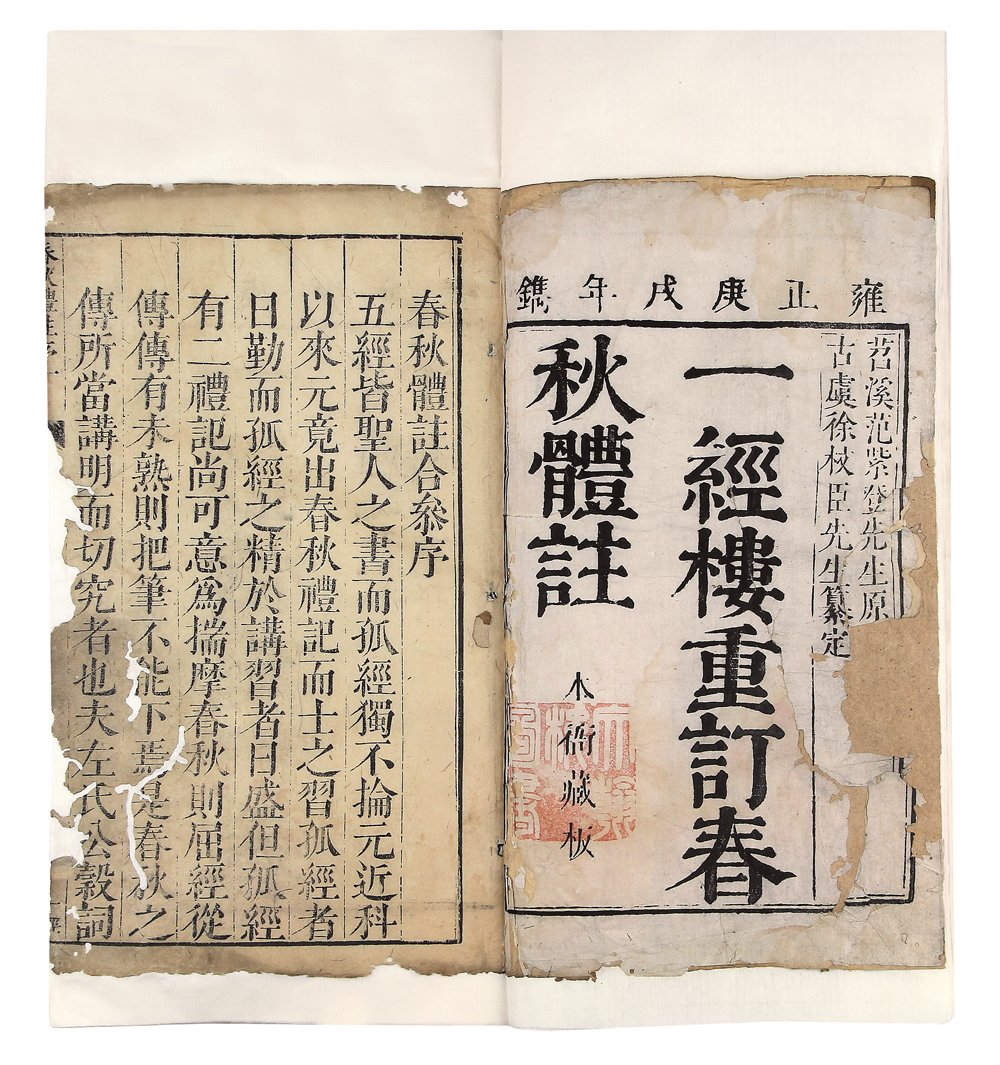 雍正庚戌年鐫
苕溪范紫登先生原
古虞徐杖臣先生纂定
一經樓重訂春
秋體註
本衙藏板
春秋體註合叅序
五經皆聖人之書而孤經獨不掄元近科
以來元竟出春秋禮記而士之習孤經者
日勤而孤經之精於講習者日盛但孤經
有二禮記尚可意爲揣摩春秋則屈經從
傳傳有未熟則把筆不能下焉是春秋之
傳所當講明而切究者也夫左氏公穀詞